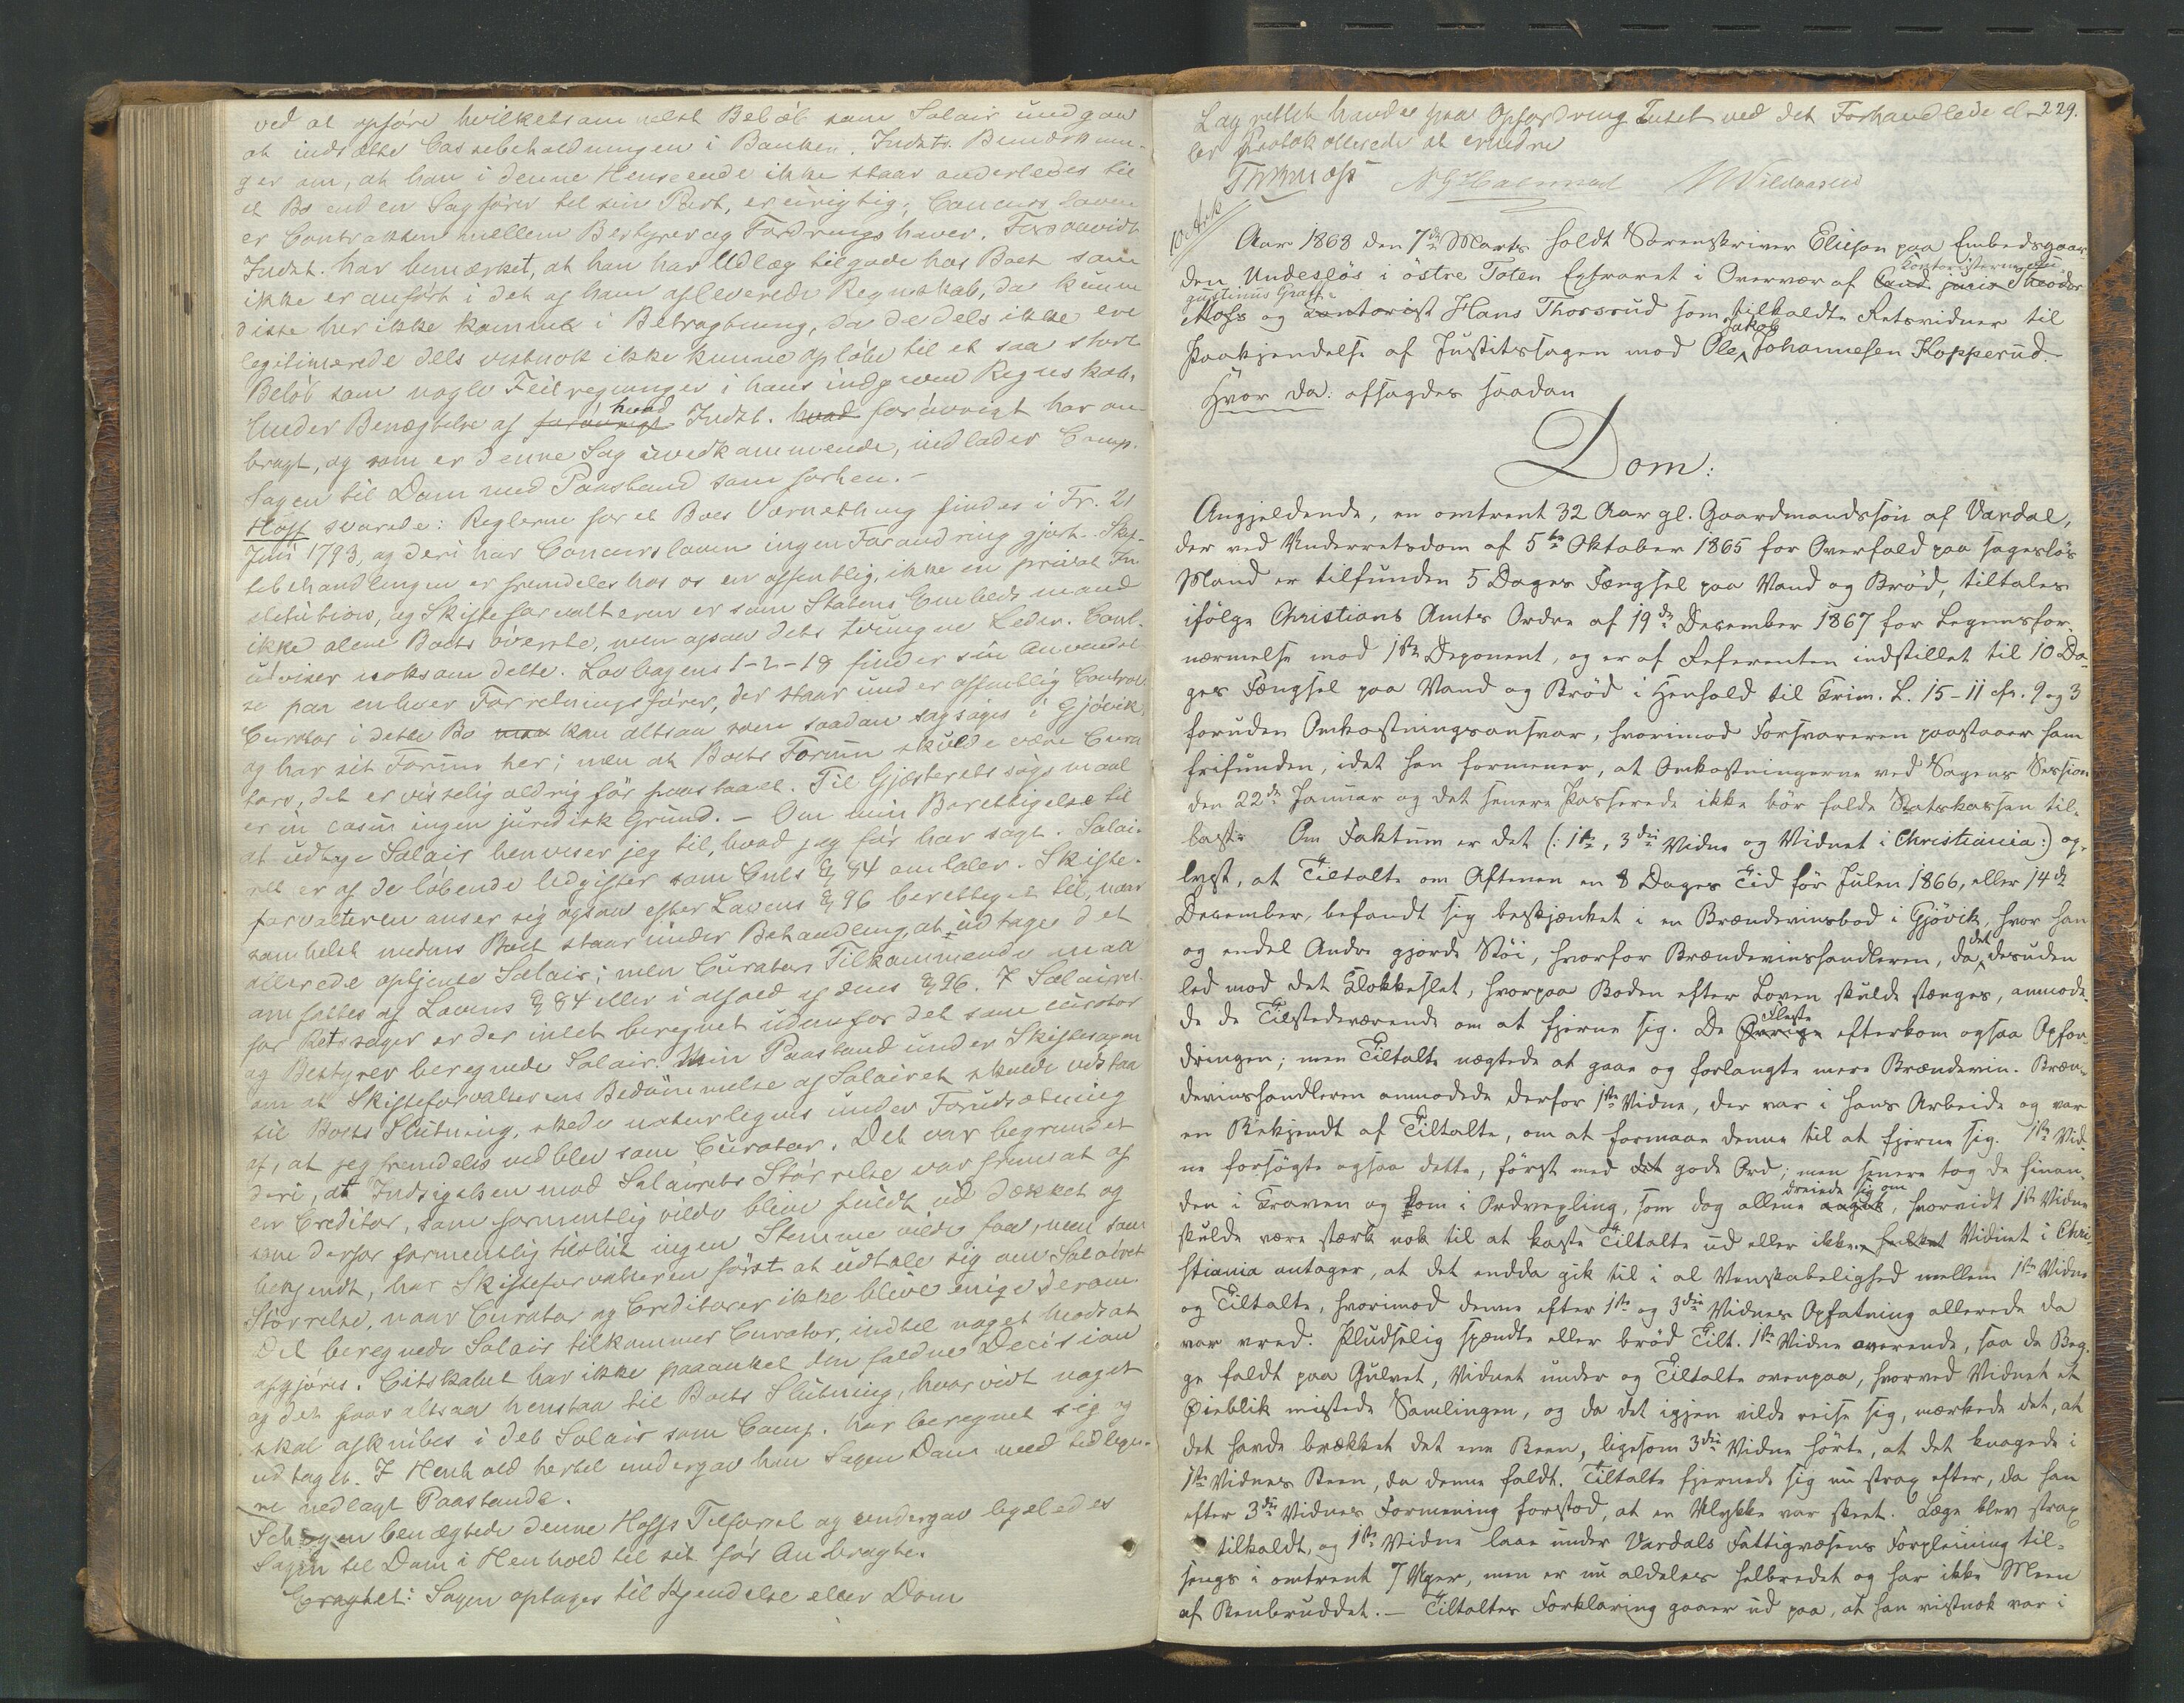 ved at opføre hvilketsomhelst Beløb som Salair undgaa
at indsætte Cassebeholdningen i Banken. Indst. Bemærknin-
ger om, at han i denne Henseende ikke staar anderledes til
et Bo end en Sagfører til sin Part, er urigtig; Concursloven
er Contrakten mellem Bestyrer og Fordringshaver. Forsaavidt
Indst. har bemærket, at han har Udlæg tilgode hos Boet som
ikke er anført i det af ham afleverede Regnskab, da kunne
disse her ikke komme i Betragtning, da de dels ikke ere
legitimerede dels vistnok ikke kunne opløbe til et saa stort
Beløb som nogle Feilregninger i hans indgivne Regnskab.
Under Benægtelse af forøvrigt hvad Indst. hvad forøvrigt har an-
bragt, og som er denne Sag uvedkommende, indlader Comp.
Sagen til Dom med Paastand som forhen.-
Hoff svarede: Reglerne for et Boes Værnething findes i Fr. 21
Juni 1793, og deri har Concursloven ingen Forandring gjort. Skif-
tebehandlingen er fremdeles hos os en offentlig, ikke en privat In-
stitution, og Skifteforvalteren er som Statens Embedsmand
ikke alene Boets øverste, men ogsaa dets tvungne Leder. Conl.
udviser noksom dette. Lovbogens 1-2-18 finder sin Anvendel-
se paa enhver Forretningsfører, der staar under offentlig Control.
Curator i dette Bo man kan altsaa som saadan sagsøges i Gjøvik,
og har sit Forum her; men at Boets Forum skulde være Cura-
tors, det er visselig aldrig før paastaaet. Til Gjæsterets søgsmaal
er in casu ingen juridisk Grund. - Om min Berettigelse til
at udtage Salair henviser jeg til, hvad jeg før har sagt. Salai-
ret er af de løbende Udgifter som Cncls § 84 omtaler. Skifte-
forvalteren anser sig ogsaa efter Lovens § 96 berettiget til, naar
somhelst medens Boet staar under Behandling, at udtage det
allerede optjente Salair; men Curators Tilkommende maa
omfattes af Lovens § 84 eller i alfald af dens § 96. I Salairet
for Retssager er der intet beregnet udenfor det som Curator
og Bestyrer beregnede Salair. Min Paastand under Skiftesagen
om at Skifteforvalterens Bedømmelse af Salairet skulde udstaa
til Boets Slutning, skede naturligvis under Forudsætning
af, at jeg fremdeles vedblev som Curator. Det var begrundet
deri, at Indsigelsen mod Salairets Størrelse var fremsat af
en Creditor, som formentlig vilde blive fuldt ud dækket og
som derfor formentlig tilslut ingen Stemme vilde faa, men som
bekjendt, har Skifteforvalteren først at udtale sig om Salairet
Størrelse, naar Curator og Creditorer ikke blive enige derom.
Det beregnede Salair tilkommer Curator, indtil noget modsat
afgjøres. Citskabet har ikke paaanket den faldne Decision
og det faar altsaa henstaa til Boets Slutning, hvorvidt noget
skal afknibes i det Salair som Comp. har beregnet sig og
udtaget. I Henhold hertil undergav han Sagen Dom med tidlige-
re nedlagt Paastande.
Schøyen benægtede denne Hoffs Tilførsel og undergav ligeledes
Sagen til Dom i Henhold til sit før Anbragte.
Eragtet: Sagen optages til Kjendelse eller Dom
Lagrettet havde paa Opfordring Intet ved det Forhandlede el- 229.
ler Protokollerede at erindre
10de Ark
Aar 1868 den 7de Marts holdt Sorenskriver Elieson paa Embedsgaar-
den Undeslös i östre Toten Extraret i Overvær af Cand. juris Theodor
Kontoristerne
gustinus Graff
Moss og contorist Hans Thorsrud som tilkaldte Retsvidner til
Jakob
Paakjendelse af Justitssagen mod Ole Johannesen Kopperud.
Hvor da: afsagdes saadan
Dom:
Angjeldende, en omtrent 32 Aar gl. Gaardmandssøn af Vardal,
der ved Underretsdom af 5te Oktober 1865 for Overfald paa sagesløs
Mand er tilfunden 5 Dages Fængsel paa Vand og Brød, tiltales
ifølge Christians Amts Ordre af 19de December 1867 for Legemsfor-
nærmelse mod 1ste Deponent, og er af Referenten indstillet til 10 Da-
ges Fængsel paa Vand og Brød i Henhold til Crim. L. 15-11 cfr. 9 og 3
foruden Omkostningsansvar, hvorimod Forsvareren paastaaer ham
frifunden, idet han formener, at Omkostningerne ved Sagens Session
den 22de Januar og det senere Passerede ikke bør falde Statskassen til-
last. Om Faktum er det (: 1ste, 3die Vidne og Vidnet i Christiania:) op-
lyst, at Tiltalte om Aftenen en 8 Dages Tid før Julen 1866, eller 14de
December, befandt sig beskjænket i en Brændevinsbod i Gjøvik, hvor han
og endel Andre gjorde Støi, hvorfor Brændevinshandleren, da det desuden
led mod det Klokkeslet, hvorpaa Boden efter Loven skulde stænges, anmode-
de de Tilstedeværende om at fjerne sig. De Øvrige Fleste efterkom ogsaa Opfor-
dringen; men Tiltalte nægtede at gaae og forlangte mere Brændevin. Bræn-
devinshandleren anmodede derfor 1ste Vidne, der var i hans Arbeide og var
en Bekjendt af Tiltalte, om at formaae denne til at fjerne sig. 1ste Vid-
ne forsøgte ogsaa dette, først med det gode Ord; men senere tog de hinan-
den i Kraven og kom i Ordvexling, som dog allene angik dreiede sig om, hvorvidt 1ste Vidne
skulde være stærk nok til at kaste Tiltalte ud eller ikke. Vidnet i Chri-
stiania antager, at det endda gik til i al Venskabelighed mellem 1ste Vidne
og Tiltalte, hvorimod denne efter 1ste og 3die Vidnes Opfatning allerede da
var vred. Pludselig spændte eller brød Tilt. 1ste Vidne overende, saa de Beg-
ge faldt paa Gulvet, Vidnet under og Tiltalte ovenpaa, hvorved Vidnet et
Øieblik mistede Samlingen, og da det igjen vilde reise sig, mærkede det, at
det havde brækket det ene Been, ligesom 3die Vidne hørte, at det knagede i
1ste Vidnes Been, da denne faldt. Tiltalte fjernede sig nu strax efter, da han
efter 3die Vidnes Formening forstod, at en Ulykke var skeet. Læge blev strax
tilkaldt, og 1ste Vidne laae under Vardals Fattigvæsens Forpleining til-
sengs i omtrent 7 Uger, men er nu aldeles helbredet og har ikke Meen
af Benbruddet.- Tiltaltes Forklaring gaaer ud paa, at han vistnok var i